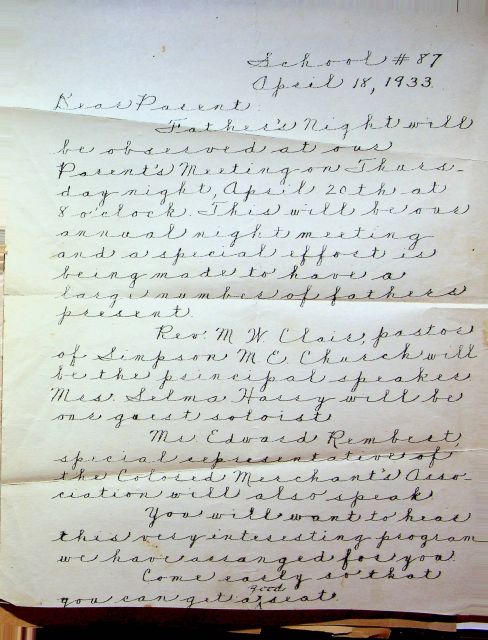 School # 87
April 18, 1933.
Dear Parent:
Father's Night will
be observed at our
Parent's Meeting on Thurs-
day night, April 20th, at
8 o'clock. This will be our
annual night meeting
and a special effort is
being made to have a
large number of fathers
present.
Rev. M. W. Clair, pastor
of Simpson M. E. Church will
be the principal speaker.
Mrs. Selma Harry will be
our guest soloist.
Mr. Edward Rembert,
special representative of
the Colored Merchant's Asso-
ciation will also speak.
You will want to hear
this very interesting program
we have arranged for you.
Come early so that
you can get a good seat.